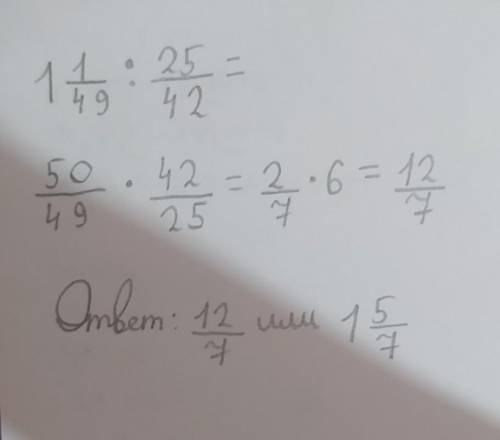 1 1/49 : 25/42 =
50/49 · 42/25 = 2/7 · 6 = 12/7
Ответ: 12/7 или 1 5/7